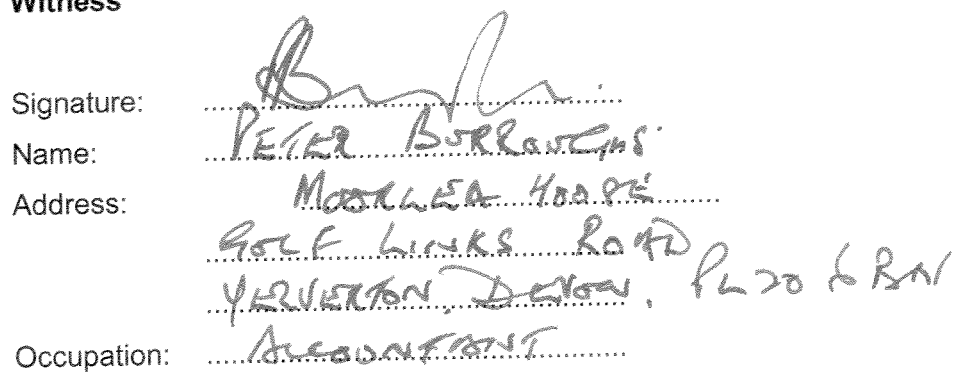 Witness
Signature:
Name: PETER BURROUGHS
Address: MOORLEA HOUSE
GOLF LINKS ROAD
YELVERTON, DEVON, PL20 6BN
Occupation: ACCOUNTANT